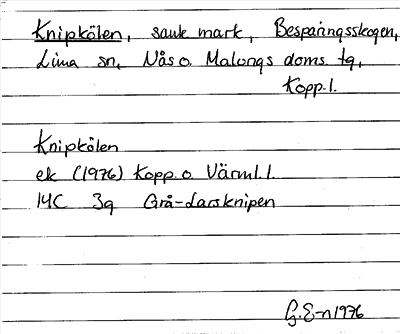 Knipkölen, sank mark, Besparingsskogen,
Lima sn, Nås o. Malungs doms. tg,
Kopp. l.
Knipkölen
ek (1976) Kopp. o. Värml. l.
14C 3g Grå-Larsknipen
G. E-n 1976